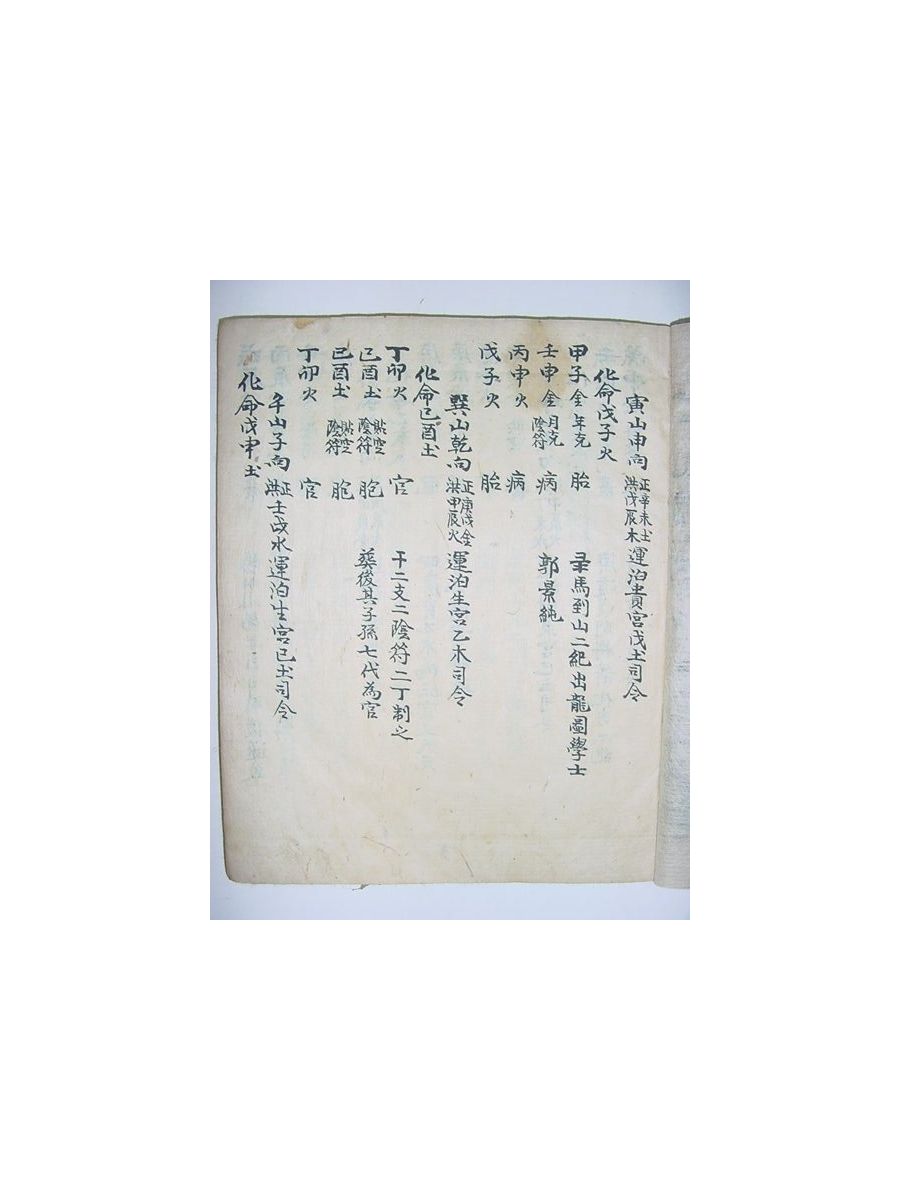 寅山申向 正辛未土 洪戊辰木 運泊貴宮戊土司令
化命戊子火
甲子金 年克 胎 馬到山二紀出龍圖學士
壬申金 月克 陰符 病 郭景純
丙申火 病
戊子火 胎
巽山乾向 正庚戌金 洪甲辰火 運泊生宮乙木司令
化命己酉土
丁卯火 官 干二支二陰符二丁制之
己酉土 陰符 胞 葬後其子孫七代為官
己酉土 陰符 胞
丁卯火 官
午山子向 正洪壬戌水運泊生宮己土司令
化命戊申土